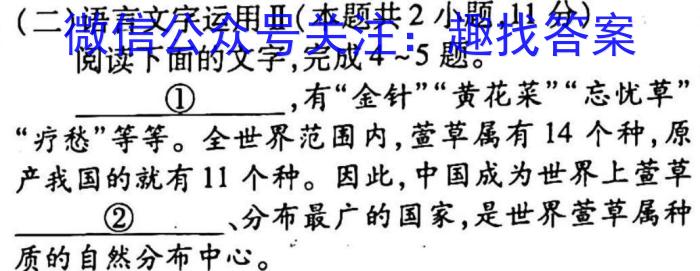 (二)语言文字运用Ⅱ(本题共2小题,11分)
微信公众号关注：趣找答案
阅读下面的文字,完成4~5题。
①,有“金针”“黄花菜”“忘忧草”
“疗愁”等等。全世界范围内,萱草属有14个种,原
产我国的就有11个种。因此,中国成为世界上萱草
②、分布最广的国家,是世界萱草属种
质的自然分布中心。